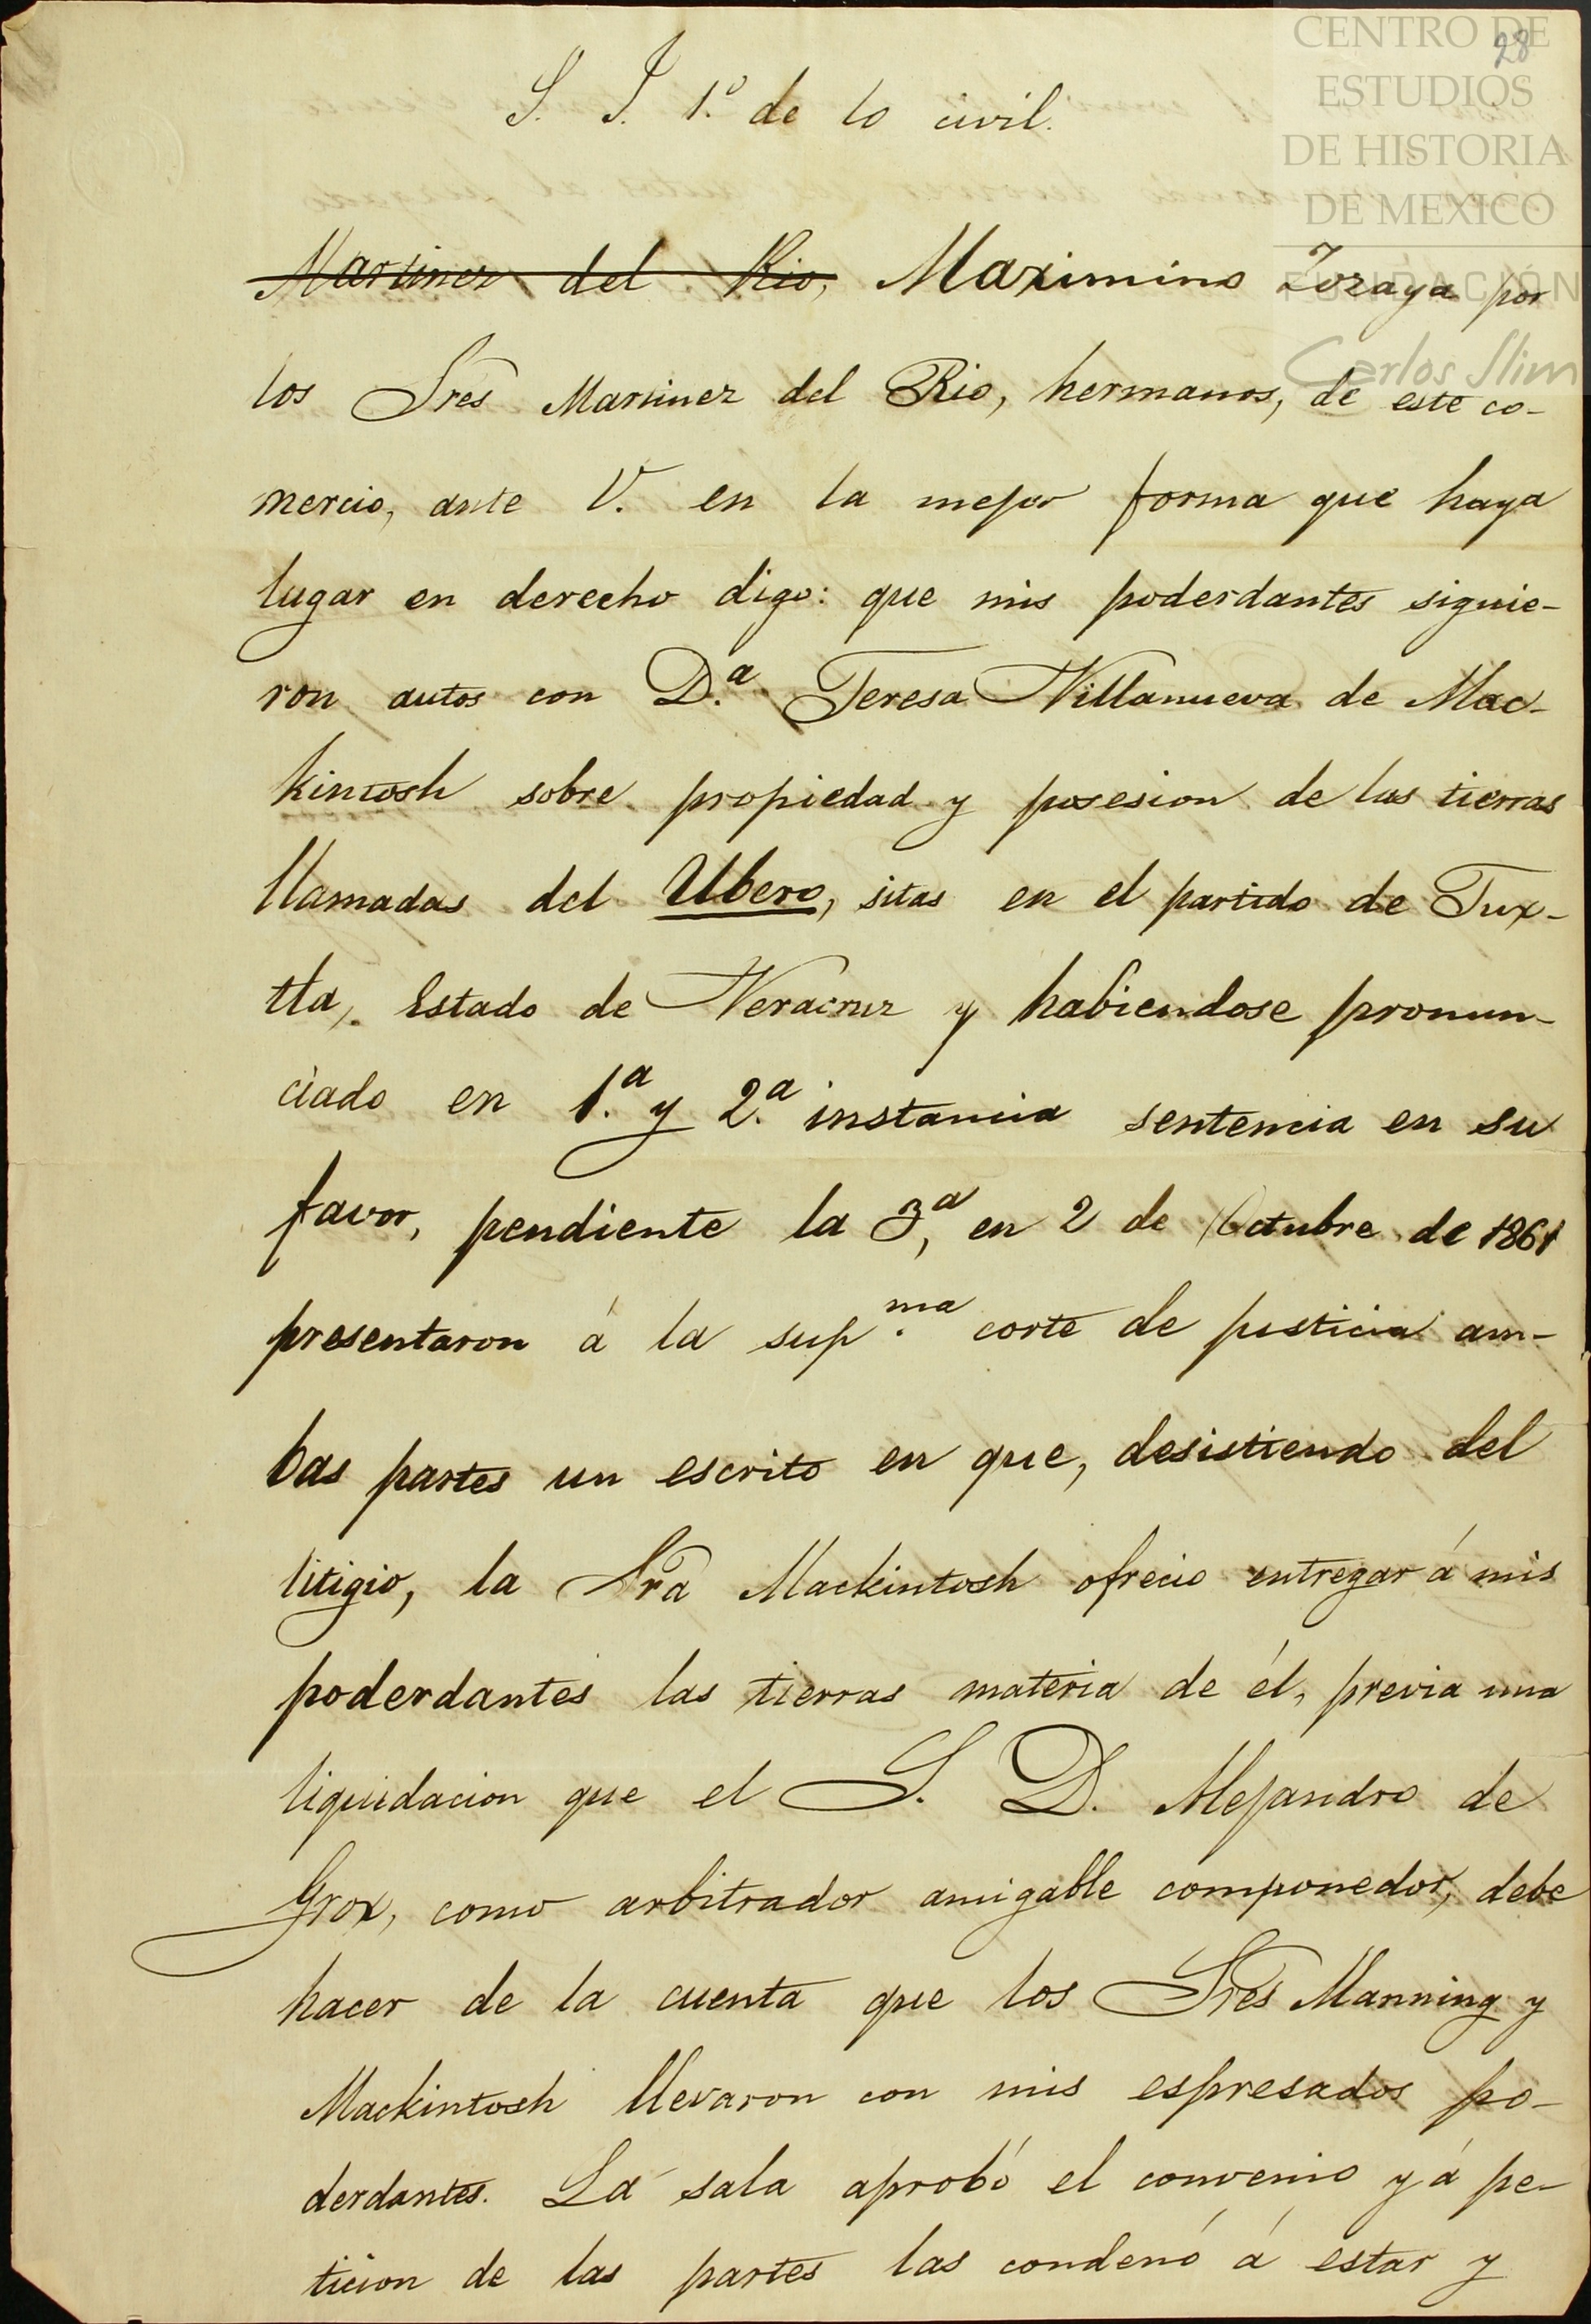 CENTRO DE
28
ESTUDIOS
DE HISTORIA
DE MEXICO
FUNDACIÓN
Carlos Slim
S. J. 1.º de lo civil.
Martinez del Rio, Maximino Zozaya por
los Sres Martinez del Rio, hermanos, de este co-
mercio, ante V. en la mejor forma que haya
lugar en derecho digo: que mis poderdantes siguie-
ron autos con D.ª Teresa Villanueva de Mac-
kintosh sobre propiedad y posesion de las tierras
llamadas del Ubero, sitas en el partido de Tux-
tla, Estado de Veracruz y habiendose pronun-
ciado en 1.ª y 2.ª instancia sentencia en su
favor, pendiente la 3.ª, en 2 de Octubre de 1861
presentaron á la sup.ma corte de justicia am-
bas partes un escrito en que, desistiendo del
litigio, la Sra Mackintosh ofrecio entregar á mis
poderdantes las tierras materia de él, previa una
liquidacion que el S. D. Alejandro de
Grox, como arbitrador amigable componedor, debe
hacer de la cuenta que los Sres Manning y
Mackintosh llevaron con mis espresados po-
derdantes. La sala aprobó el convenio y á pe-
ticion de las partes las condenó á estar y